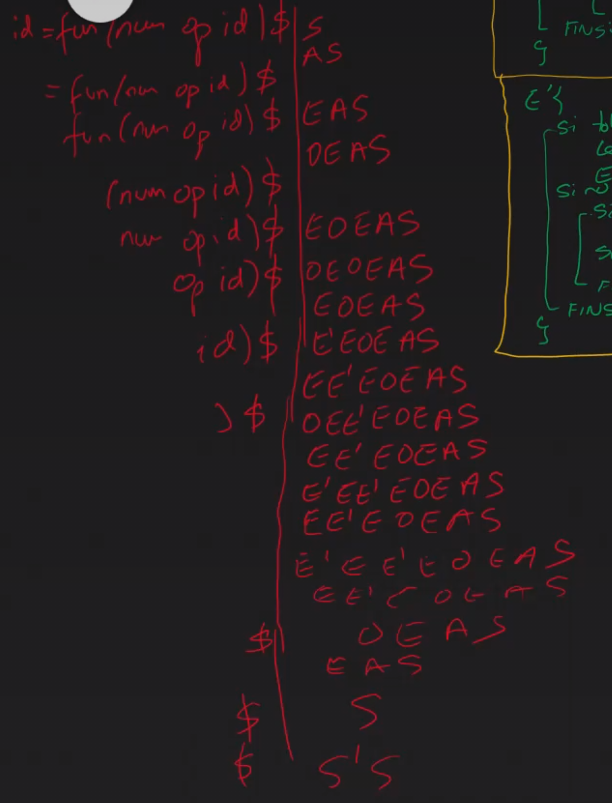 id = fun(num op id)$ S
AS
= fun(num op id)$
fun(num op id)$ EAS
OEAS
(num op id)$
num op id)$ EOEAS
op id)$ OEOEAS
EOEAS
id)$ E'EOEAS
EE'EOEAS
)$ OEE'EOEAS
EE'EOEAS
E'EE'EOEAS
EE'EOEAS
E'EE'EOEAS
EE'EOEAS
$ OEAS
EAS
$ S
$ S'S
FINS
}
E'{
Si
E
Si no
Si
S
F
FINS
}